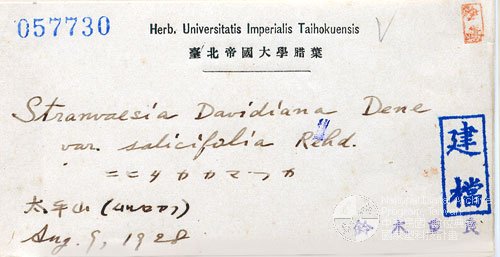 057730
Herb. Universitatis Imperialis Taihokuensis
臺北帝國大學腊葉
Stranvaesia Davidiana Dene
var. salicifolia Rehd.
太平山
Aug. 9, 1928
建檔
鈴木重良